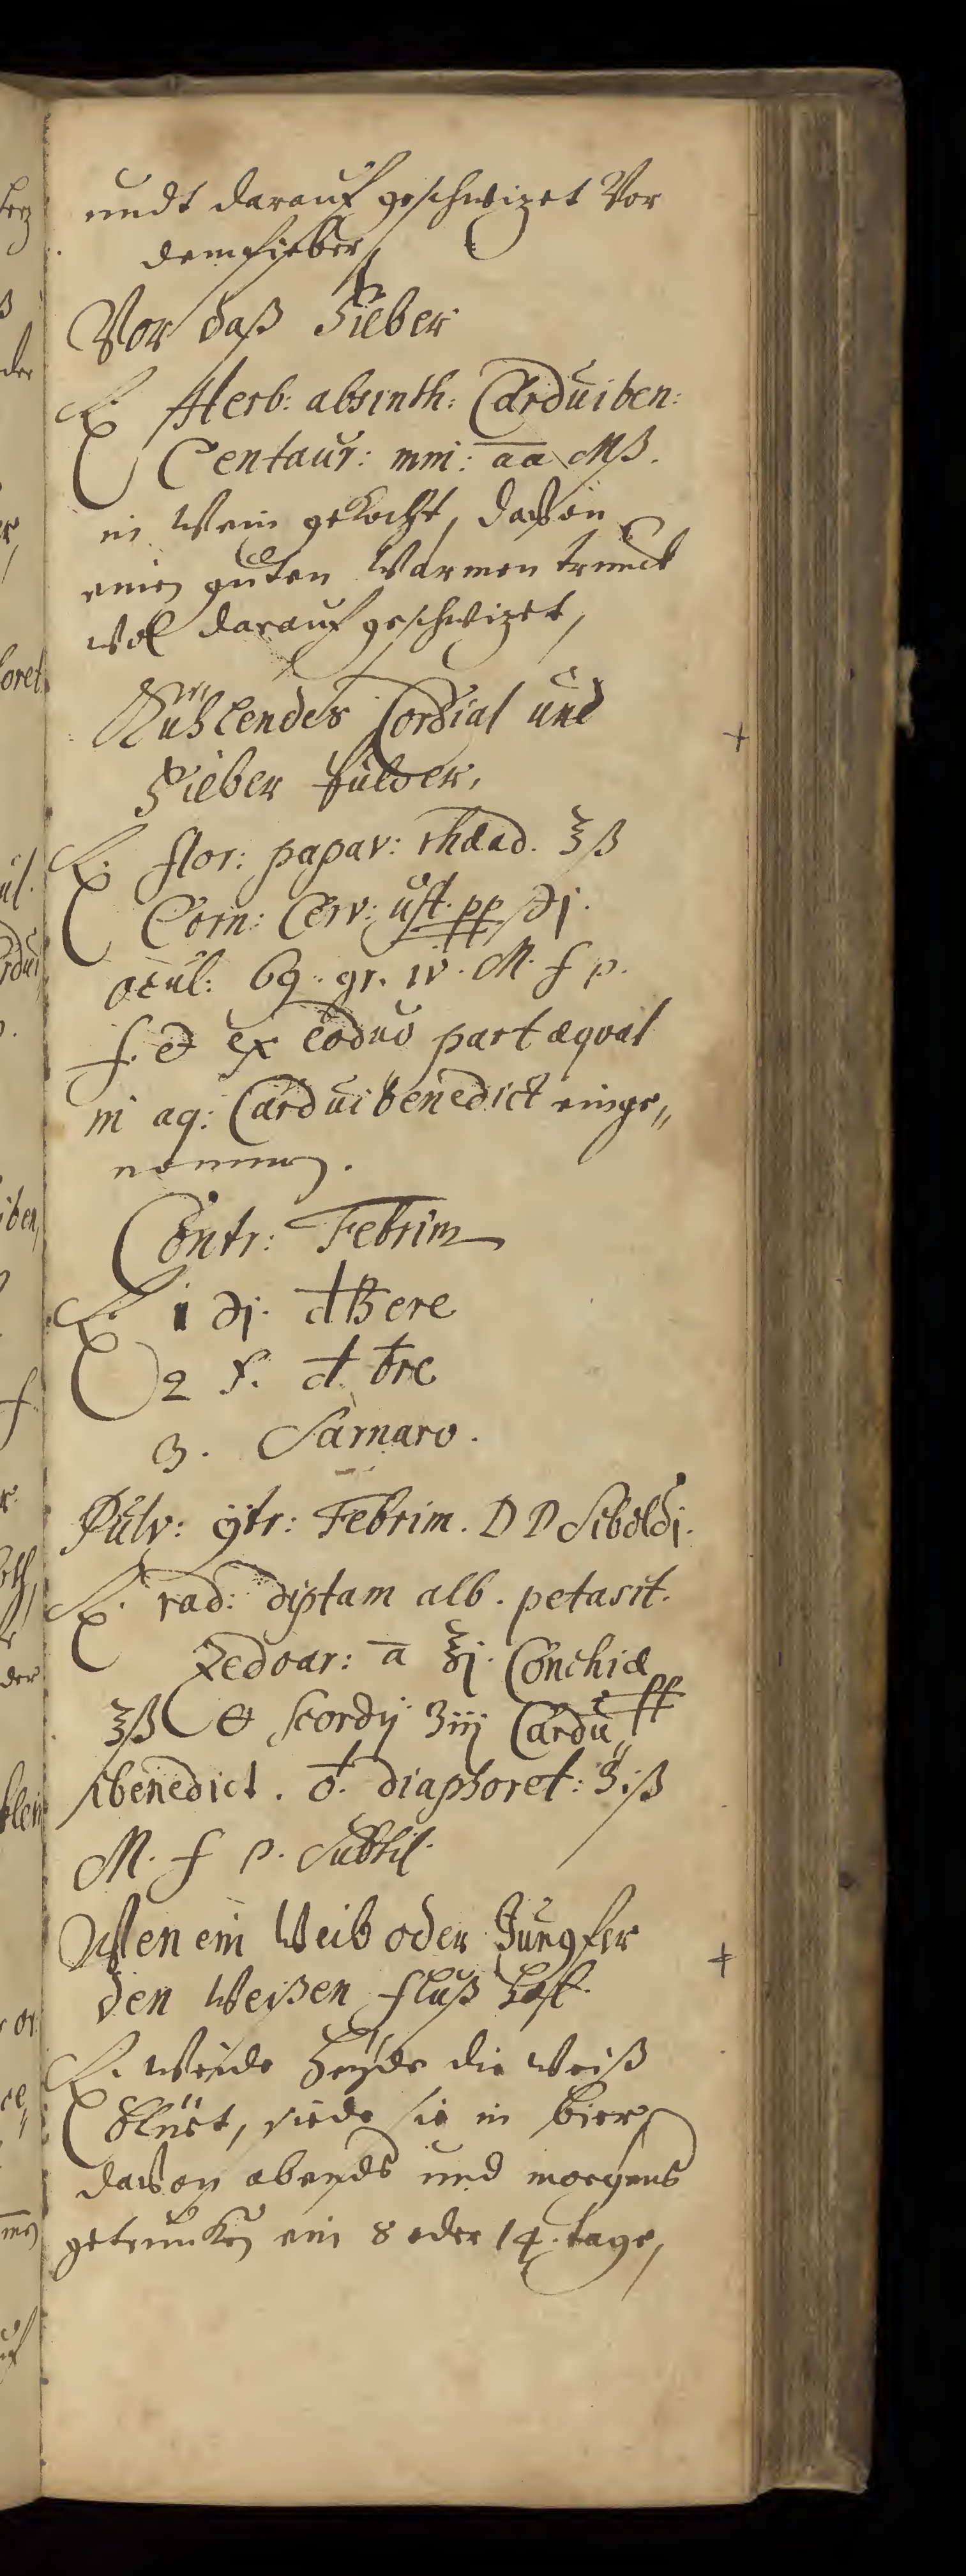 undt darauf geschwizet Vor
dem fieber,
Vor daß Fieber
℞. Herb: absinth: Cardui ben:
Centaur: min: aa Mß.
in Wein gekocht, davon
einen guten Warmen trunck
wol darauf geschwizet,
Kühlendes Cordial und
Fieber Pulver,
℞. flor: papav: rhæad. ʒß
Corn: Cerv: ust. pp ℈j.
ocul: 69. gr. iv. M. f p.
f. et ex part æqval
in aq: Cardui benedict einge„
nommen.
Contr: Febrim
℞. 1 ℈j.
2
3.
Pulv: ꝯtr: Febrim. D D Siboldj.
℞. rad: diptam alb. petasit.
Zedoar: a ʒj. Conchiæ pp
ʒß & scordij ʒiij Cardu„
ibenedict. ♁. diaphoret: ʒiß
M. f p. Subtil.
Wen ein Weib oder Jungfer
den Weißen fluß hatt.
℞. Weide heyde die weiß
blüet, siede sie in bier,
davon abends und morgens
getruncken ein 8 oder 14. tage,